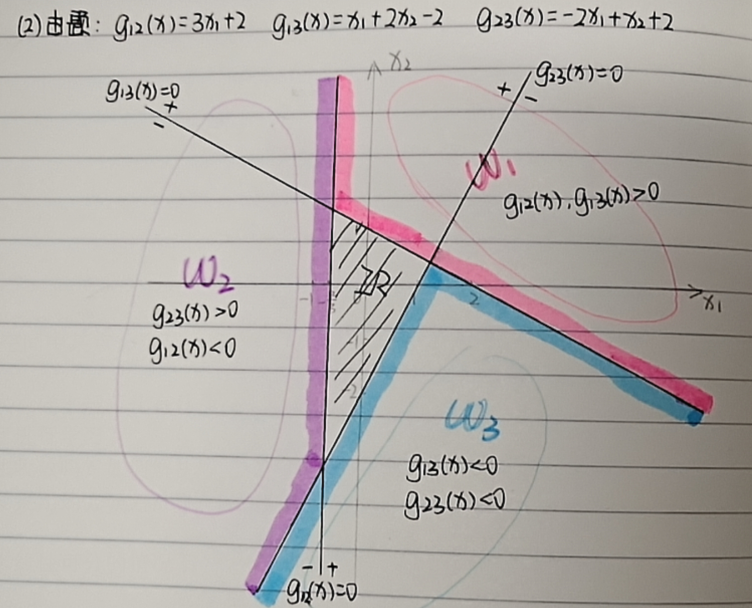 (2)由题: g12(x)=3x1+2 g13(x)=x1+2x2-2 g23(x)=-2x1+x2+2
x2
g13(x)=0
+
-
g23(x)=0
+ -
W1
g12(x), g13(x)>0
W2
g23(x)>0
g12(x)<0
IR
-1
1
2
x1
-1
-2
W3
g13(x)<0
g23(x)<0
- +
g12(x)=0